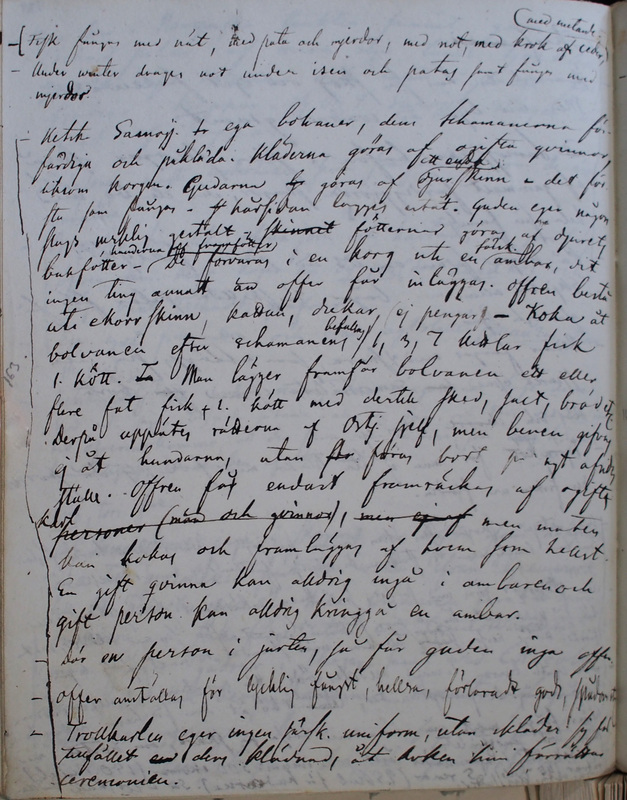 (med metande)
Fisk fångas med nät, med pata och mjerdor, med not, med krok af ceder,
Under winter drages not under isen och patas samt fångas med
mjerdor.
Ketsk Samoj. ega bolvaner, dem Schamanerna för-
färdiga och påkläda. Kläderna göras af ogifta qvinnor,
liksom korgen. Gudarna göras af ett enda djurskinn – det för
sta som fångas. – hårsidan lägges utåt. Guden eger någon
slags menlig gestalt, skinnet fötterna göras af djurets
bakfötter – händerna af framfötter
De förvaras i en korg uti en särsk. ambar, dit
ingen ting annat än offer får inläggas. Offren bestå
uti ekorrskinn, kattun, dukar, (ej pengar) – Koka åt
bolvanen efter schamanens befallng 1, 3, 7 kittlar fisk
l. kött. Man lägger framför bolvanen ett eller
flere fat fisk l. kött med dertill sked, salt, bröd etc
Derpå uppätes rätterna af Ostj. sjelf, men benen gifvas
ej åt hundarna, utan föras bort på ngt afsides
ställe. Offren få endast framräckas af ogifta
karl personer (män och qvinnor), men ej af men maten
kan kokas och framläggas af hvem som helst.
En gift qvinna kan aldrig ingå i ambaren och
gift person kan aldrig kringgå en ambar.
Dör en person i jurten, så får guden inga offer.
offer anställas för lycklig fångst, helsa, förloradt gods,
Trollkarlen eger ingen särsk. uniform, utan kläder sig för
tillfället en ders klädnad, åt hvilken han förrättar
ceremonien.
153.